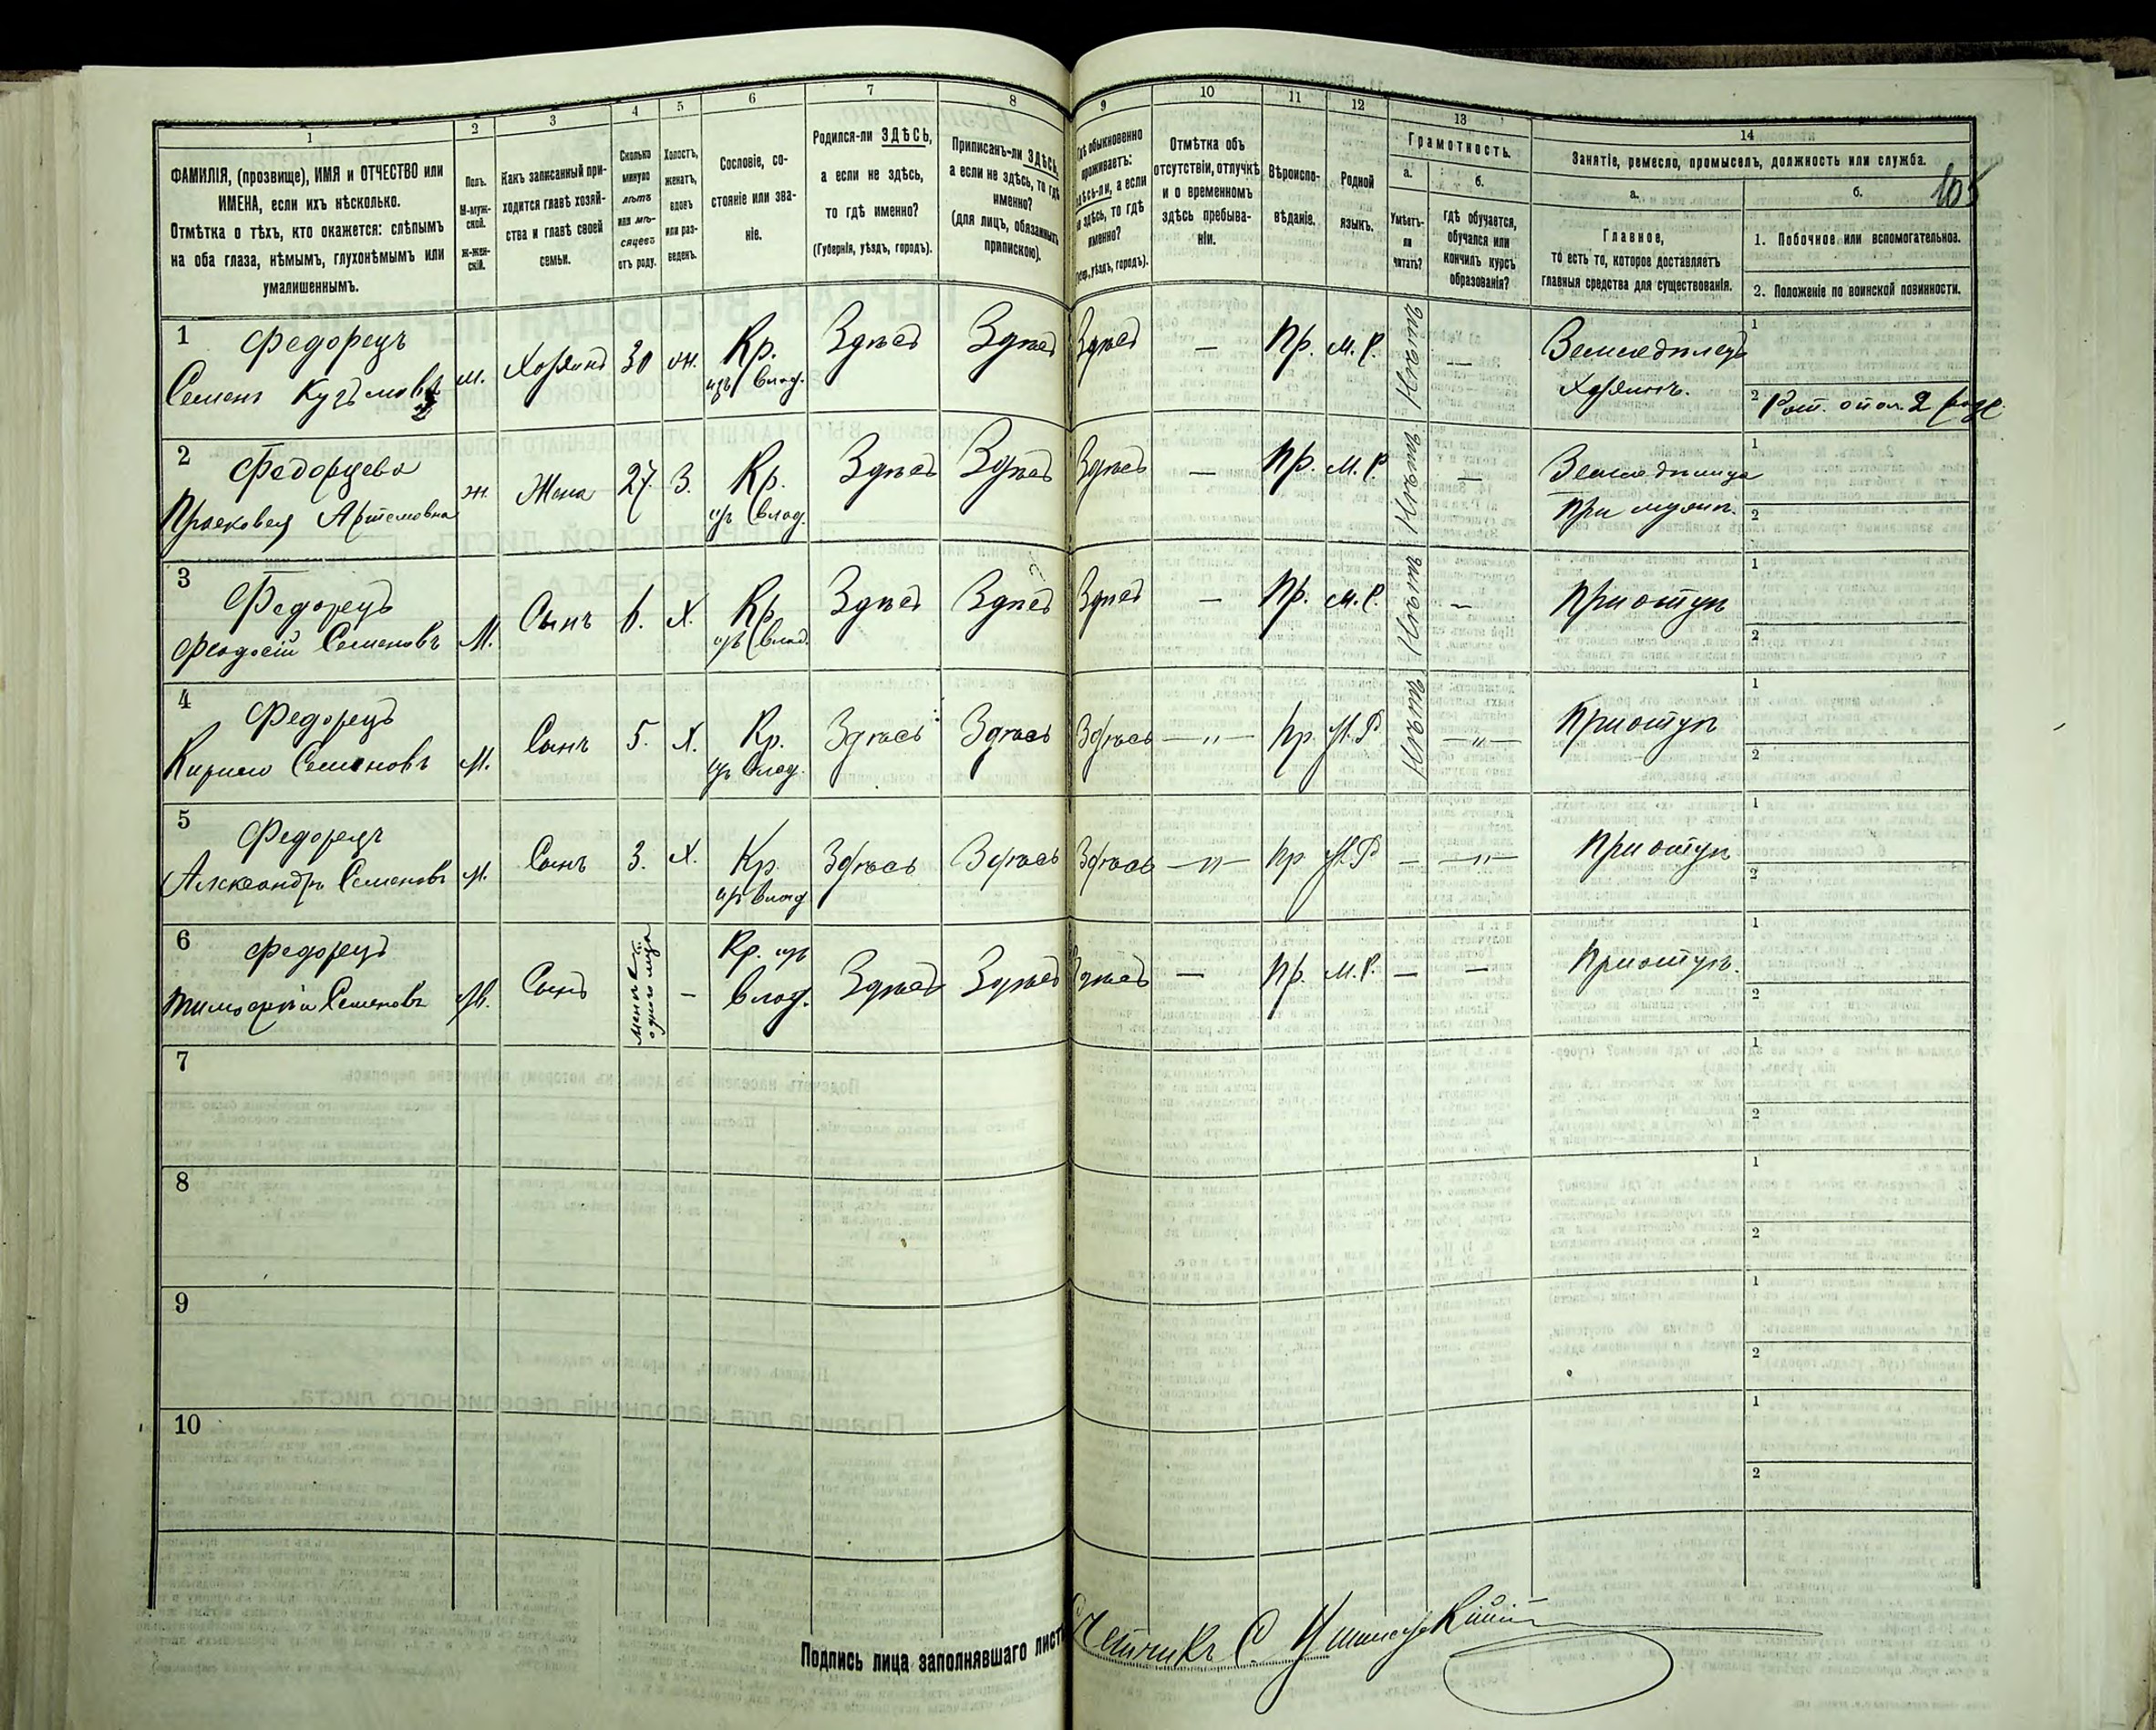 1
2
3
4
5
6
7
8
ФАМИЛІЯ, (прозвище), ИМЯ и ОТЧЕСТВО или
ИМЕНА, если ихъ нѣсколько.
Отмѣтка о тѣхъ, кто окажется: слѣпымъ
на оба глаза, нѣмымъ, глухонѣмымъ или
умалишеннымъ.
Полъ.
М-муж-
ской.
Ж-жен-
скій.
Какъ записанный при-
ходится главѣ хозяй-
ства и главѣ своей
семьи.
Сколько
минуло
лѣтъ
или мѣ-
сяцевъ
отъ роду.
Холостъ,
женатъ,
вдовъ
или раз-
веденъ.
Сословіе, со-
стояніе или зва-
ніе.
Родился-ли ЗДѢСЬ,
а если не здѣсь,
то гдѣ именно?
(Губернія, уѣздъ, городъ).
Приписанъ-ли ЗДѢСЬ,
а если не здѣсь, то гдѣ
именно?
(для лицъ, обязанныхъ
припискою).
9
10
11
12
13
14
Гдѣ обыкновенно
проживаетъ:
здѣсь-ли, а если
не здѣсь, то гдѣ
именно?
(губ., уѣздъ, городъ).
Отмѣтка объ
отсутствіи, отлучкѣ
и о временномъ
здѣсь пребыва-
ніи.
Вѣроиспо-
вѣданіе.
Родной
языкъ.
Грамотность.
а.
б.
Умѣетъ-
ли
читать?
гдѣ обучается,
обучался или
кончилъ курсъ
образованія?
Занятіе, ремесло, промыселъ, должность или служба.
105
а.
б.
Главное,
то есть то, которое доставляетъ
главныя средства для существованія.
1. Побочное или вспомогательное.
2. Положеніе по воинской повинности.
1 Федорецъ
Семенъ Кузьмовъ м. Хозяинъ 30 ж. Кр. изъ влад. Здѣсь Здѣсь Здѣсь — Пр. М. Р. Нѣтъ — Земледѣлецъ
Хозяинъ.
1
2 Рат. опол. 2 разр.
2 Федорцева
Прасковея Артемовна ж. Жена 27. З. Кр. изъ влад. Здѣсь Здѣсь Здѣсь — Пр. М. Р. Нѣтъ — Земледѣлица
При мужѣ.
1
2
3 Федорецъ
Феодосій Семеновъ М. Сынъ 6. Х. Кр. изъ влад. Здѣсь Здѣсь Здѣсь — Пр. М. Р. Нѣтъ — При отцѣ
1
2
4 Федорецъ
Кирило Семеновъ М. Сынъ 5. Х. Кр. изъ влад. Здѣсь Здѣсь Здѣсь —"— Пр М.Р Нѣтъ —"— При отцѣ
1
2
5 Федорецъ
Александръ Семеновъ М. Сынъ 3. Х. Кр. изъ влад Здѣсь Здѣсь Здѣсь —"— Пр М.Р — —"— При отцѣ
1
2
6 Федорецъ
Тимофѣй Семеновъ М. Сынъ одного мца — Кр. изъ влад. Здѣсь Здѣсь Здѣсь — Пр. М. Р. — — При отцѣ.
1
2
7
1
2
8
1
2
9
1
2
10
1
2
Подпись лица заполнявшаго листъ
Счетчикъ С.